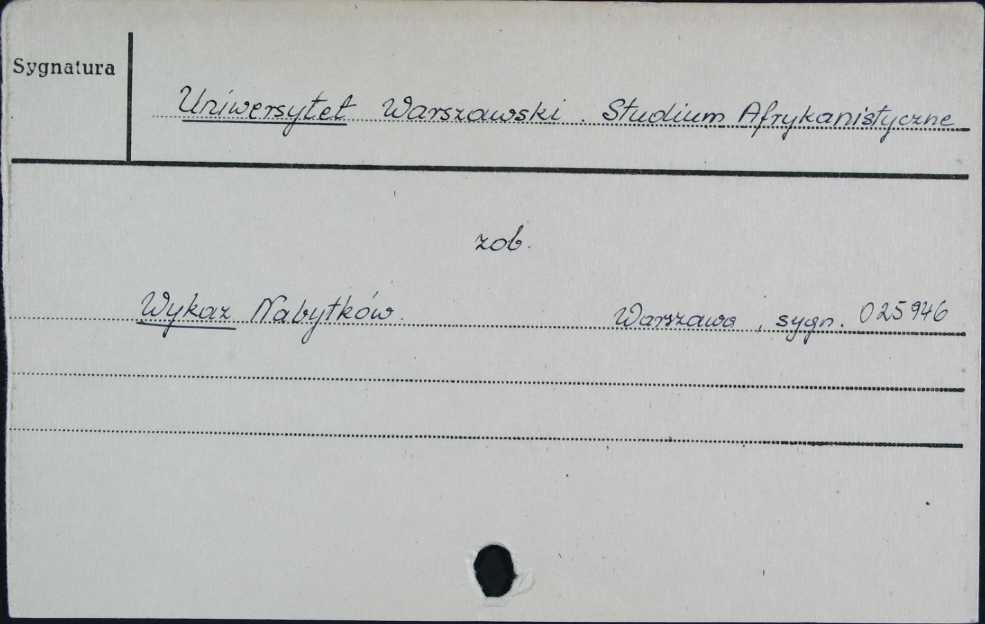 Sygnatura
Uniwersytet Warszawski. Studium Afrykanistyczne
zob.
Wykaz Nabytków. Warszawa, sygn. 025946